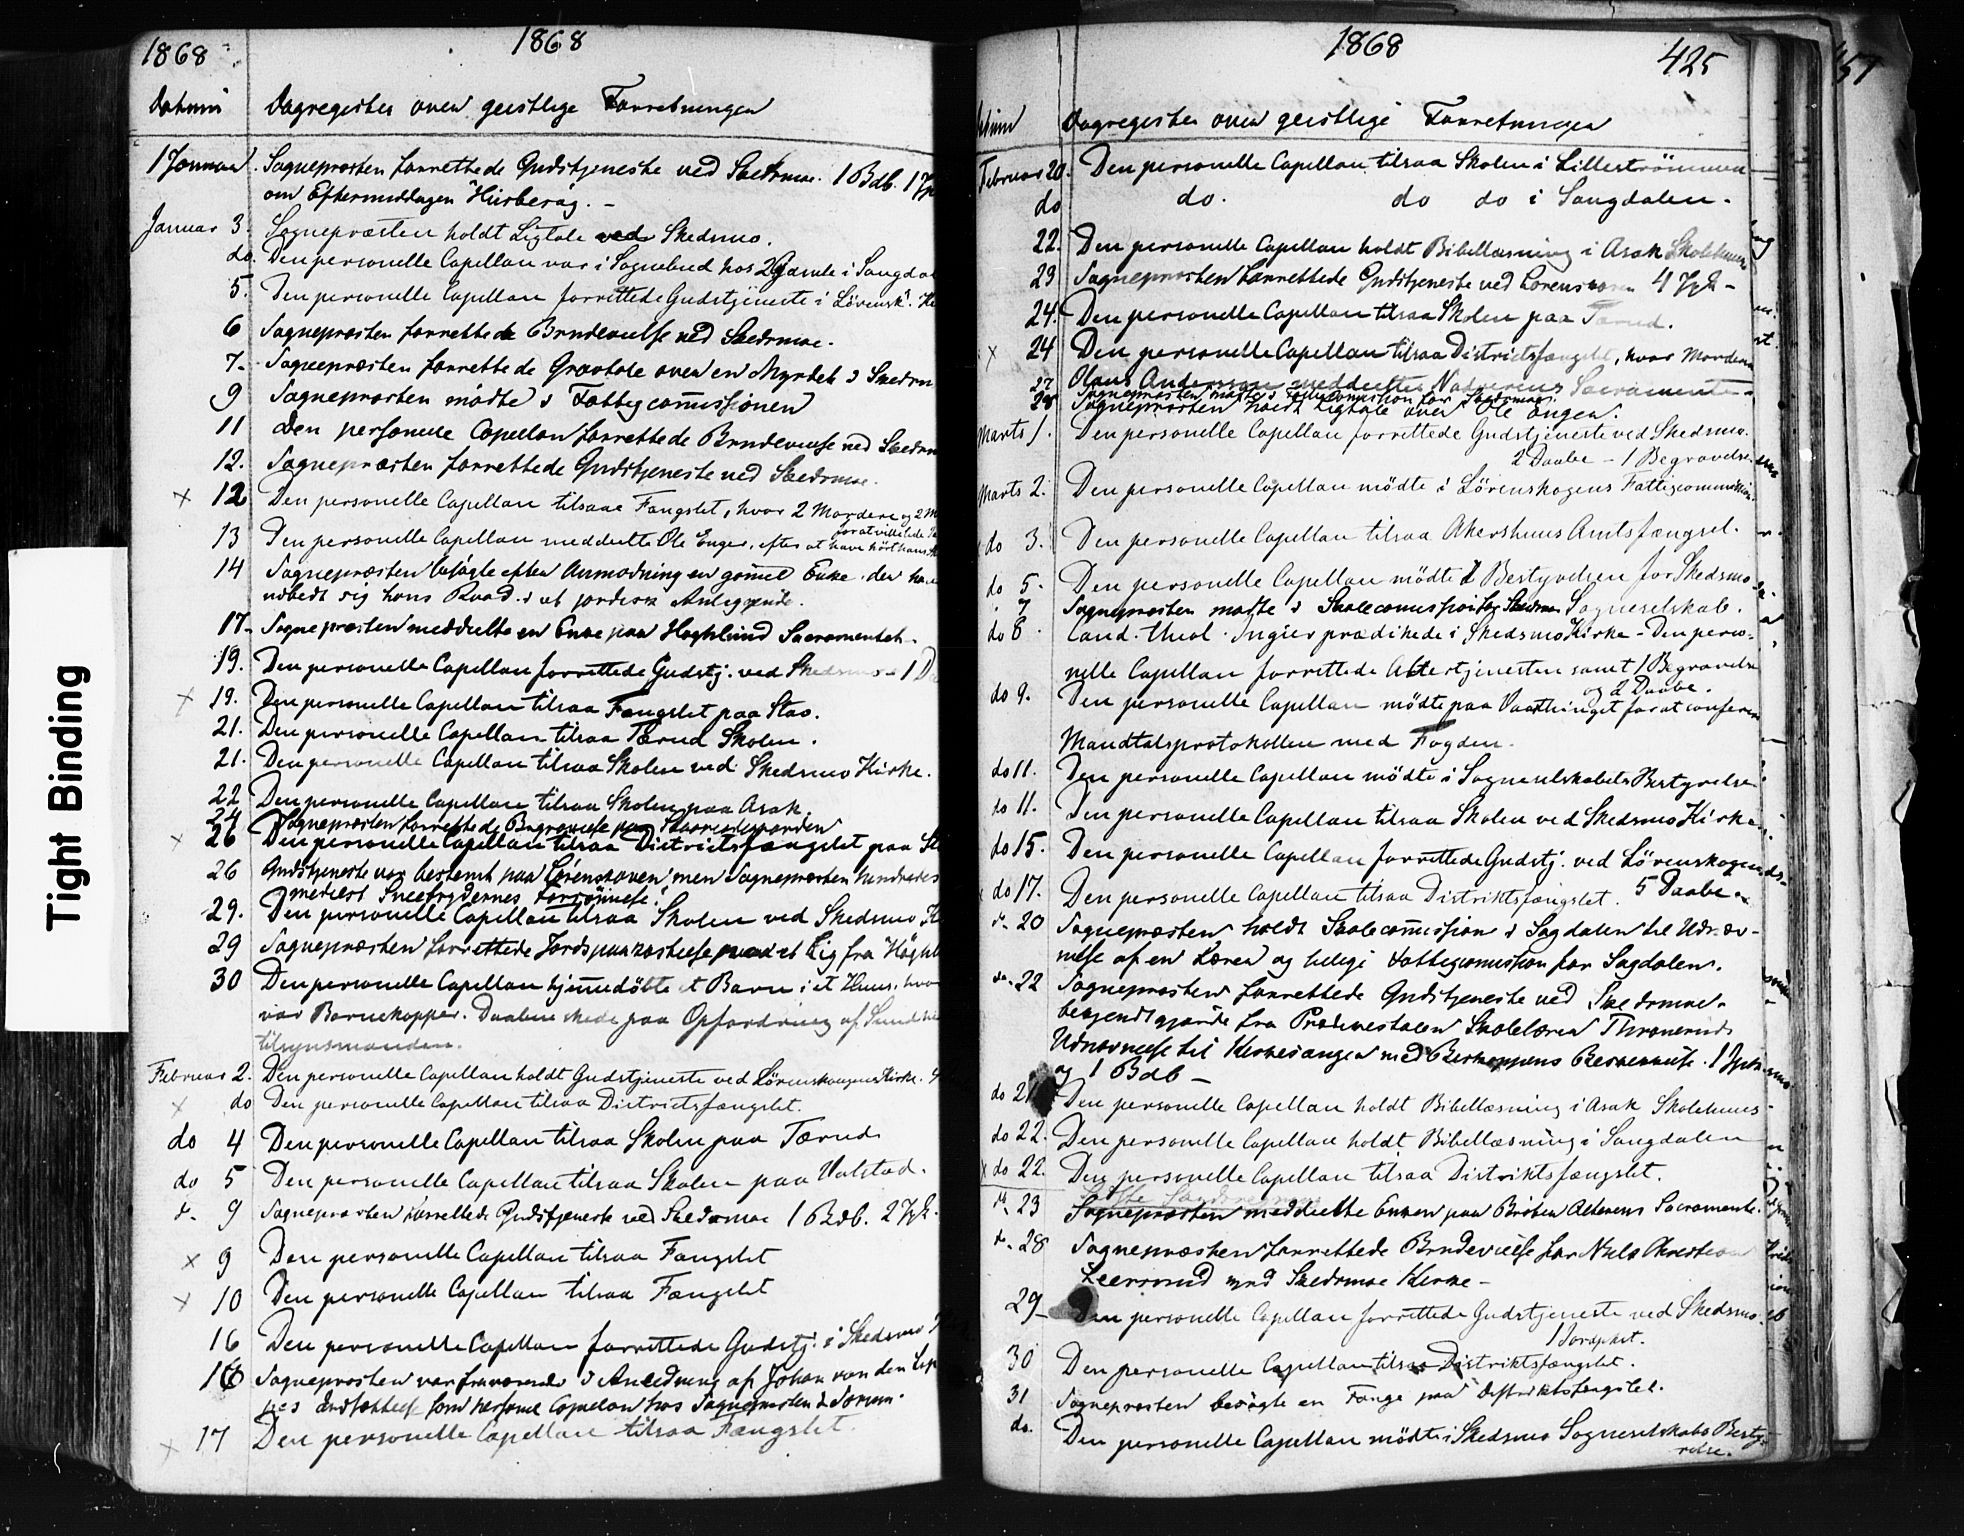 Tight Binding
1868 1868
Datum Dagregister over geistlige Forretninger
1 Januar Sognepræsten forrettede Gudstjeneste ved Skedsmoe. 1 Bdb. 1
om Eftermiddagen
Januar 3. Sognepræsten holdt Ligtale ved Skedsmo.
do. Den personelle Capellan var i Sognebud hos 2 Gamle i
5. Den personelle Capellan forrettede Gudstjeneste i Lörensk.
6 Sognepræsten forrettede Brudevielse ved Skedsmoe.
7. Sognepræsten forrettede Gravtale over en Myrdet i
9 Sognepræsten mødte i Fattigcommissionen
11 Den personelle Capellan forrettede Brudevielse ved
12. Sognepræsten forrettede Gudstjeneste ved Skedsmoe.
x 12 Den personelle Capellan tilsaae Fængslet, hvor 2 Mordere og 2
13 Den personelle Capellan meddeelte Ole Enger, efter at have hört hans
14 Sognepræsten besøgte efter Anmodning en gammel Enke, der
udbedt sig hans Raad i et
17. Sognepræsten meddeelte en Enke paa Sacramentet.
19. Den personelle Capellan forrettede Gudstj. ved Skedsmo - 1
x 19. Den personelle Capellan tilsaa Fængslet paa Stav.
21. Den personelle Capellan tilsaa Tærud Skolen.
21. Den personelle Capellan tilsaa Skolen ved Skedsmo Kirke.
22 Den personelle Capellan tilsaa Skolen paa Asak
24 Sognepræsten forrettede Begravelse paa
x 26 Den personelle Capellan tilsaa Districtsfængslet paa
26 Gudstjeneste var bestemt paa Lörenskoven men Sognepræsten hindredes
29. Den personelle Capellan tilsaa Skolen ved Skedsmo
29 Sognepræsten forrettede Jordspaakastelse paa et Lig fra
30 Den personelle Capellan hjemmedöbte et Barn i et Huus, hvor
var Barnekopper. Daaben skede paa Opfordring af
tilsynsmanden.
Februar 2. Den personelle Capellan holdt Gudstjeneste ved Lörenskougens Kirke.
x do Den personelle Capellan tilsaa Districtsfængslet.
do 4 Den personelle Capellan tilsaa Skolen paa Tærud
do 5 Den personelle Capellan tilsaa Skolen paa Valstad.
d. 9 Sognepræsten forrettede Gudstjeneste ved Skedsmoe 1 Bdb. 2
x 9 Den personelle Capellan tilsaa Fængslet
x 10 Den personelle Capellan tilsaa Fængslet
16 Den personelle Capellan forrettede Gudstj. i Skedsmo
16 Sognepræsten var fraværende i Anledning af Johan van den
Indsættelse som personel Capellan hos Sognepræsten i Sörum.
x 17 Den personelle Capellan tilsaa Fængslet.
1868 425
Dagregister over geistlige Forretninger
Februar 20. Den personelle Capellan tilsaa Skolen i Lilleströmmen
do do. do do i Sangdalen.
22. Den personelle Capellan holdt Bibellæsning i Asak Skolehuus
23 Sognepræsten forrettede Gudstjeneste ved Lörenskoven 4
24. Den personelle Capellan tilsaa Skolen paa Tærud.
x 24 Den personelle Capellan tilsaa Districtsfængslet, hvor Morderen
Olaus Andersson meddeeltes Nadverens Sacramente.
27 Sognepræsten mødte i Fattigcommission for Skedsmoe.
28 Sognepræsten holdt Ligtale over Ole Enger.
Marts 1. Den personelle Capellan forrettede Gudstjeneste ved Skedsmo.
2 Daabe - 1 Begravelse
Marts 2. Den personelle Capellan mödte i Lörenskogens Fattigcommission.
do 3. Den personelle Capellan tilsaa Akershuus Amtsfængsel.
do 5. Den personelle Capellan mödte i Bestyrelsen for Skedsmo
7 Sognepræsten mødte i Skolecommission Sogneselskab.
do 8. Cand. theol. Ingier prædikede i Skedsmo Kirke - Den perso-
nelle Capellan forrettede Altertjenesten samt 1 Begravelse
og 2 Daabe.
do 9. Den personelle Capellan mödte paa Vaarthinget for at conferere
Mandtalsprotokollen med Fogden.
do 11. Den personelle Capellan mödte i Sogneselskabets Bestyrelse
do 11. Den personelle Capellan tilsaa Skolen ved Skedsmo Kirke
do 15. Den personelle Capellan forrettede Gudstj. ved Lörenskogen
5 Daabe.
do 17. Den personelle Capellan tilsaa Distriktsfængslet.
d. 20 Sognepræsten holdt Skolecommission i Sagdalen til Udnæv-
nelse af en Lærer og tillige Fattigcommission for Sagdalen.
d. 22 Sognepræsten forrettede Gudstjeneste ved Skedsmoe.
bekjendtgjorde fra Prædikestolen Skolelærer Thronerud
Udnævnelse til Kirkesanger ved Biskoppens 1
og 1 Bdb -
do 21 Den personelle Capellan holdt Bibellæsning i Asak Skolehuus
do 22. Den personelle Capellan holdt Bibellæsning i Sangdalen
x do 22. Den personelle Capellan tilsaa Distriktsfængslet.
d. 23 Sognepræsten meddeelte Enken paa Alterens Sacramente.
d. 28 Sognepræsten forrettede Brudevielse for Niels
ved Skedsmoe Kirke -
29 Den personelle Capellan forrettede Gudstjeneste ved Skedsmo.
1 Jordpkst.
30 Den personelle Capellan tilsaa Distriktsfængslet.
31 Sognepræsten besøgte en Fange paa Distriktsfængslet.
do. Den personelle Capellan mödte i Skedsmo Sogneselskabs Besty-
relse.